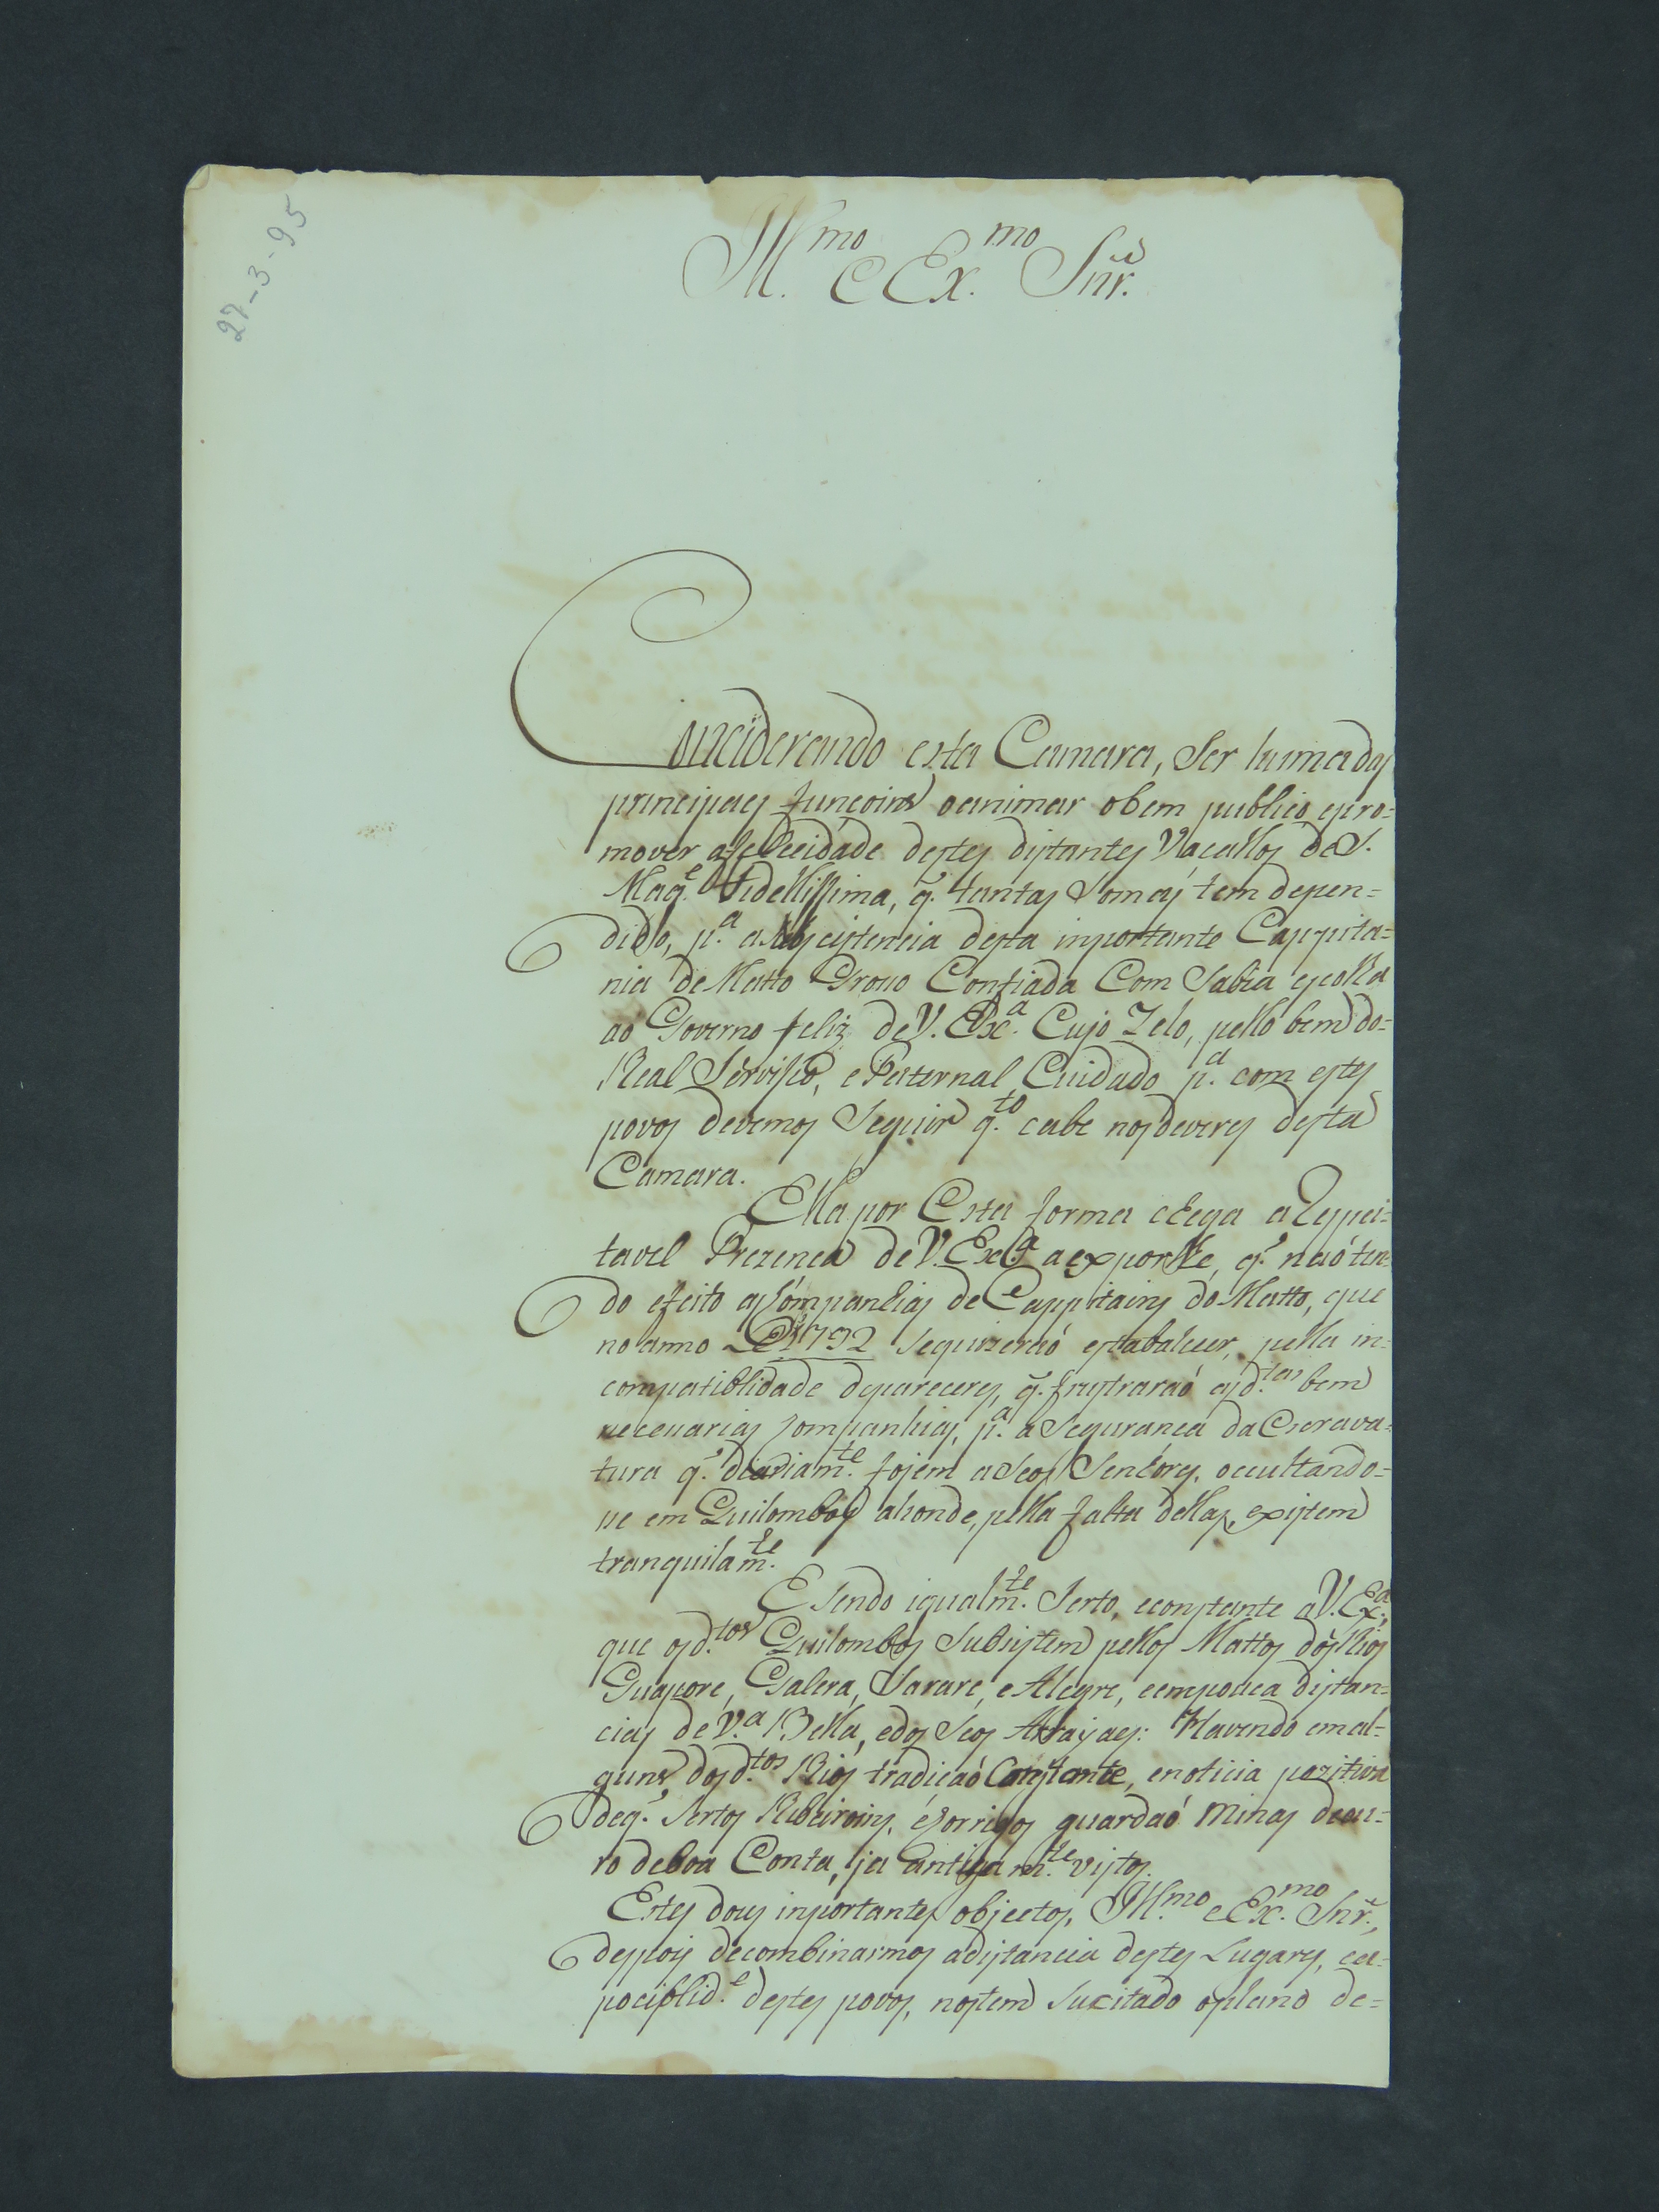 27-3-95
Ill.mo e Ex.mo Snr.
Conciderando esta Camara, Ser huma das
principaes funçoins o animar o bem publico, e pro=
mover a felecidade destes distantes Vaçallos de S.
Mag.e Fidellissima, q. tantas Somas tem depen=
dido, p.a a Subcistencia desta inportante Cappita=
nia de Matto Grosso Confiada Com Sabia escolha
ao Governo feliz de V. Ex.a Cujo Zelo, pello bem do=
Real Servisso, e Paternal Cuidado p.a com estes
povos devemos Seguir q.to cabe nos deveres desta
Camara.
Ella por Esta forma chega a Respei=
tavel Prezença de V. Ex.a a expor lhe, q. naó ten=
do efeito as Companhias de Cappitains do Matto, que
no anno de 1792 Sequizeraó estabalecer, pella in=
compatiblidade de pareceres, q. frustraraó as d.tas bem
necessarias Companhias, p.a a Segurança da Escrava=
tura q. diariam.te fojem a Seos Senhores, occultando=
se em Quilombos ahonde, pella falta dellas, existem
tranquilam.te
E Sendo igualm.te Serto, e constante a V. Ex.a,
que os d.tos Quilombos Subsistem pellos Mattos dos Rios
Guapore, Galera, Sarare, e Alegre, e em pouca distan=
cias de V.a Bella, e dos Seos Arrayaes: Havendo em al=
guns dos d.tos Rios tradiçaó Constante, e noticia pozitiva
de q. Sertos Ribeiroins, e Corrigos guardaó Minas de ou=
ro de boa Conta, ja antigam.te vistos.
Estes dous inportantes objectos, Ill.mo e Ex.mo Snr.,
despois de combinarmos a distancia destes Lugares, e a
pociblid.e destes povos, nos tem Sucitado o plano de=